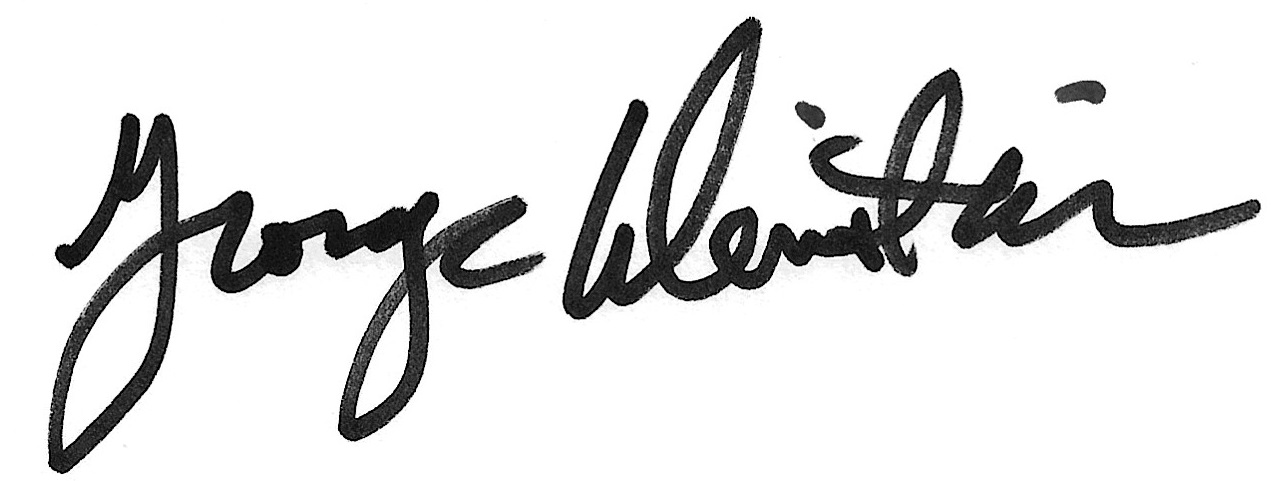 George Weinstein